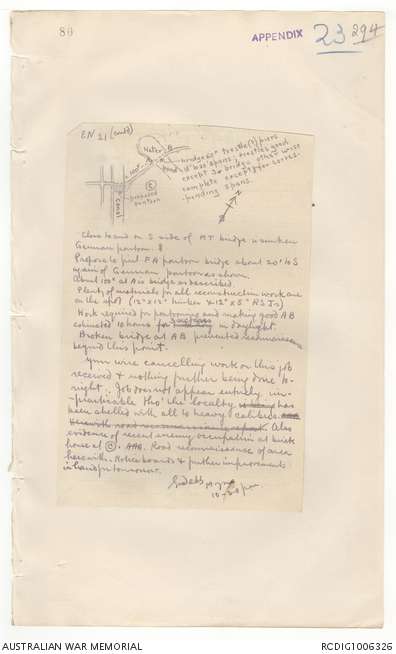 80
APPENDIX
23 294
EN 21 (contd)
Water B
A
bridge 60' trestle (?) piers
and 12' bay spans; trestles good
except 3rd bridge other wise
complete except for corres-
ponding spans.
C
proposed
pontoon
Canal
Close to and on S side of A.T. bridge is sunken
German pontoon.
Propose to put F.A. pontoon bridge about 20' to S
again of German pontoon as above.
About 100' at A is bridge as described.
Plenty of materials for all reconstruction work are
on the spot (12"x12" timber & 12"x5" RSJs)
Work required for pontooning and making good AB
estimated 10 hours for 2 sections in daylight.
Broken bridge at AB prevented reconnaissance
beyond this point.
Your wire cancelling work on this job
received & nothing further being done to-
night. Job does not appear entirely im-
practicable tho' the locality has
been shelled with all to heavy calibres.
Also
evidence of recent enemy occupation at brick
house at C. AAA. Road reconnaissance of area
herewith. Notice boards & further improvements
in hand for tomorrow.
10-30 pm.
AUSTRALIAN WAR MEMORIAL
RCDIG1006326